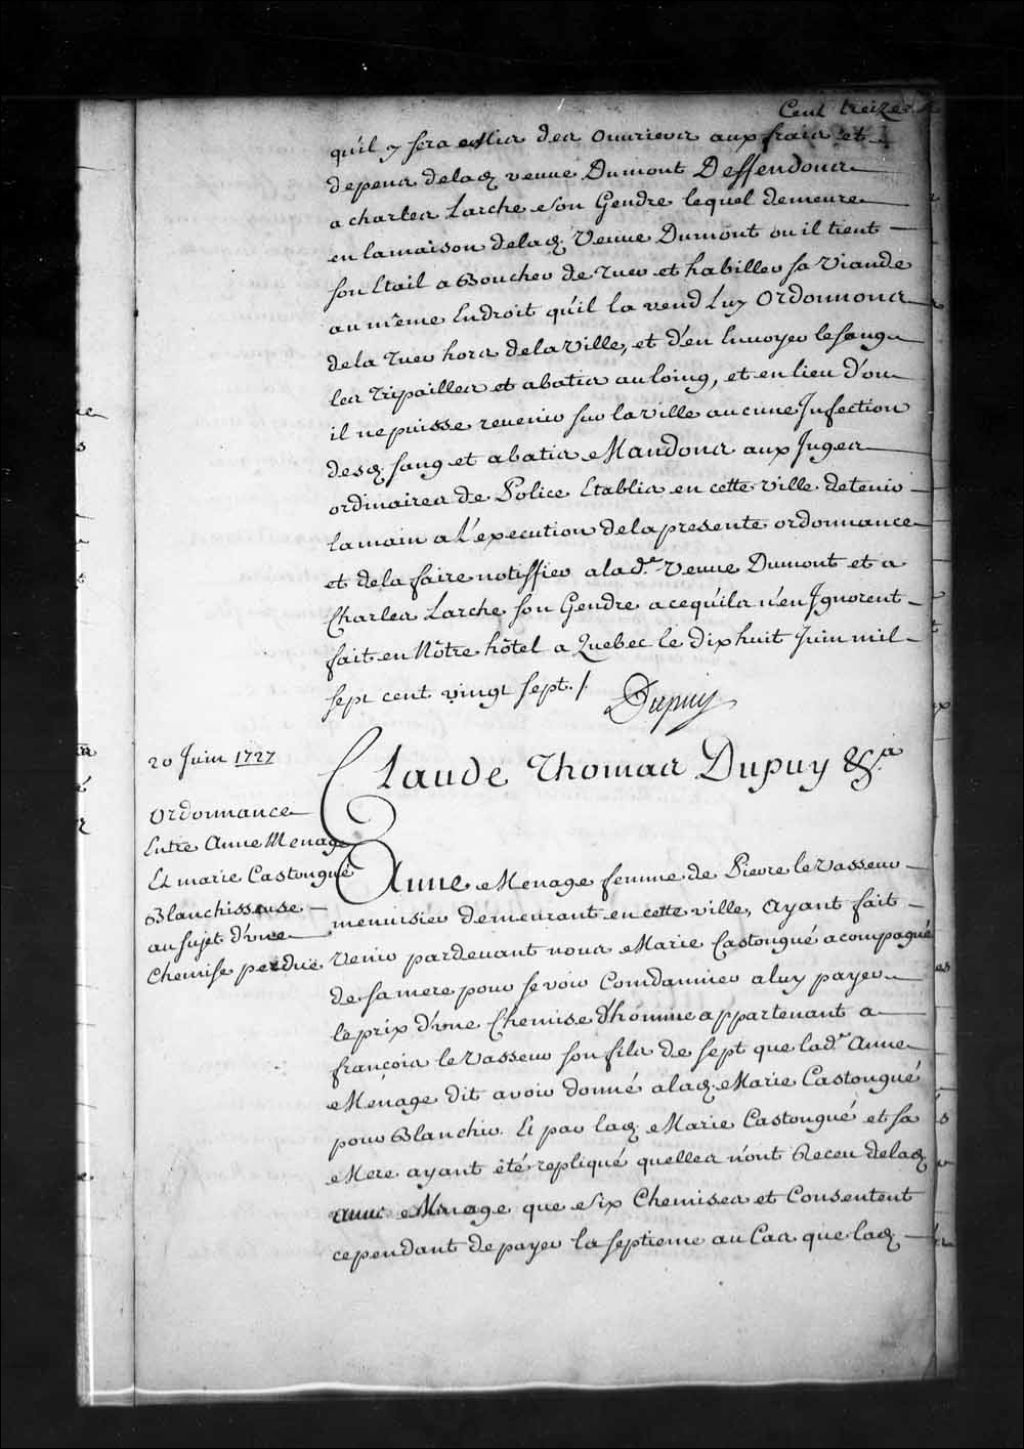 Cent treize
qu'il y sera mis des ouvriers aux frais et
depens de lad. veuve Dumont Deffendons
a charles Larche son Gendre lequel demeure
en la maison de lad. Veuve Dumont ou il tient
son Etail a Boucher de tuer et habiller sa Viande
au même Endroit qu'il la vend Luy Ordonnons
de la tuer hors de la Ville, et d'en Envoyer le sang
les tripailles et abatis au loing, et en lieu d'ou
il ne puisse revenir sur la ville aucune Infection
desd. sang et abatis Mandons aux Juges
ordinaires de Police Etablis en cette ville de tenir
la main a L'execution de la presente ordonnance
et de la faire notiffier a lad.e Veuve Dumont et a
Charles Larche son Gendre a ce qu'ils n'en Ignorent
fait en Nôtre hôtel a Quebec le dix huit Juin mil
sept cent vingt sept./.
Dupuy
20 Juin 1727
Claude Thomas Dupuy &.a
Ordonnance
Entre Anne Menage
Et marie Castongué
Blanchisseuse
au sujet d'une
Chemise perdue
Anne Menage femme de Pierre le Vasseur
menuisier demeurant en cette ville, Ayant fait
Venir pardevant nous Marie Castongué acompagné
de sa mere pour se voir Comdamner a luy payer
le prix d'une Chemise d'hómme appartenant a
françois le Vasseur son fils de sept que lad.e Anne
Menage dit avoir donné a lad. Marie Castongué
pour Blanchir. Et par lad. Marie Castongué et sa
Mere ayant été repliqué quelles n'ont Receu de lad.
Anne Menage que Six Chemises et Consentent
cependant de payer la septieme au Cas que lad.